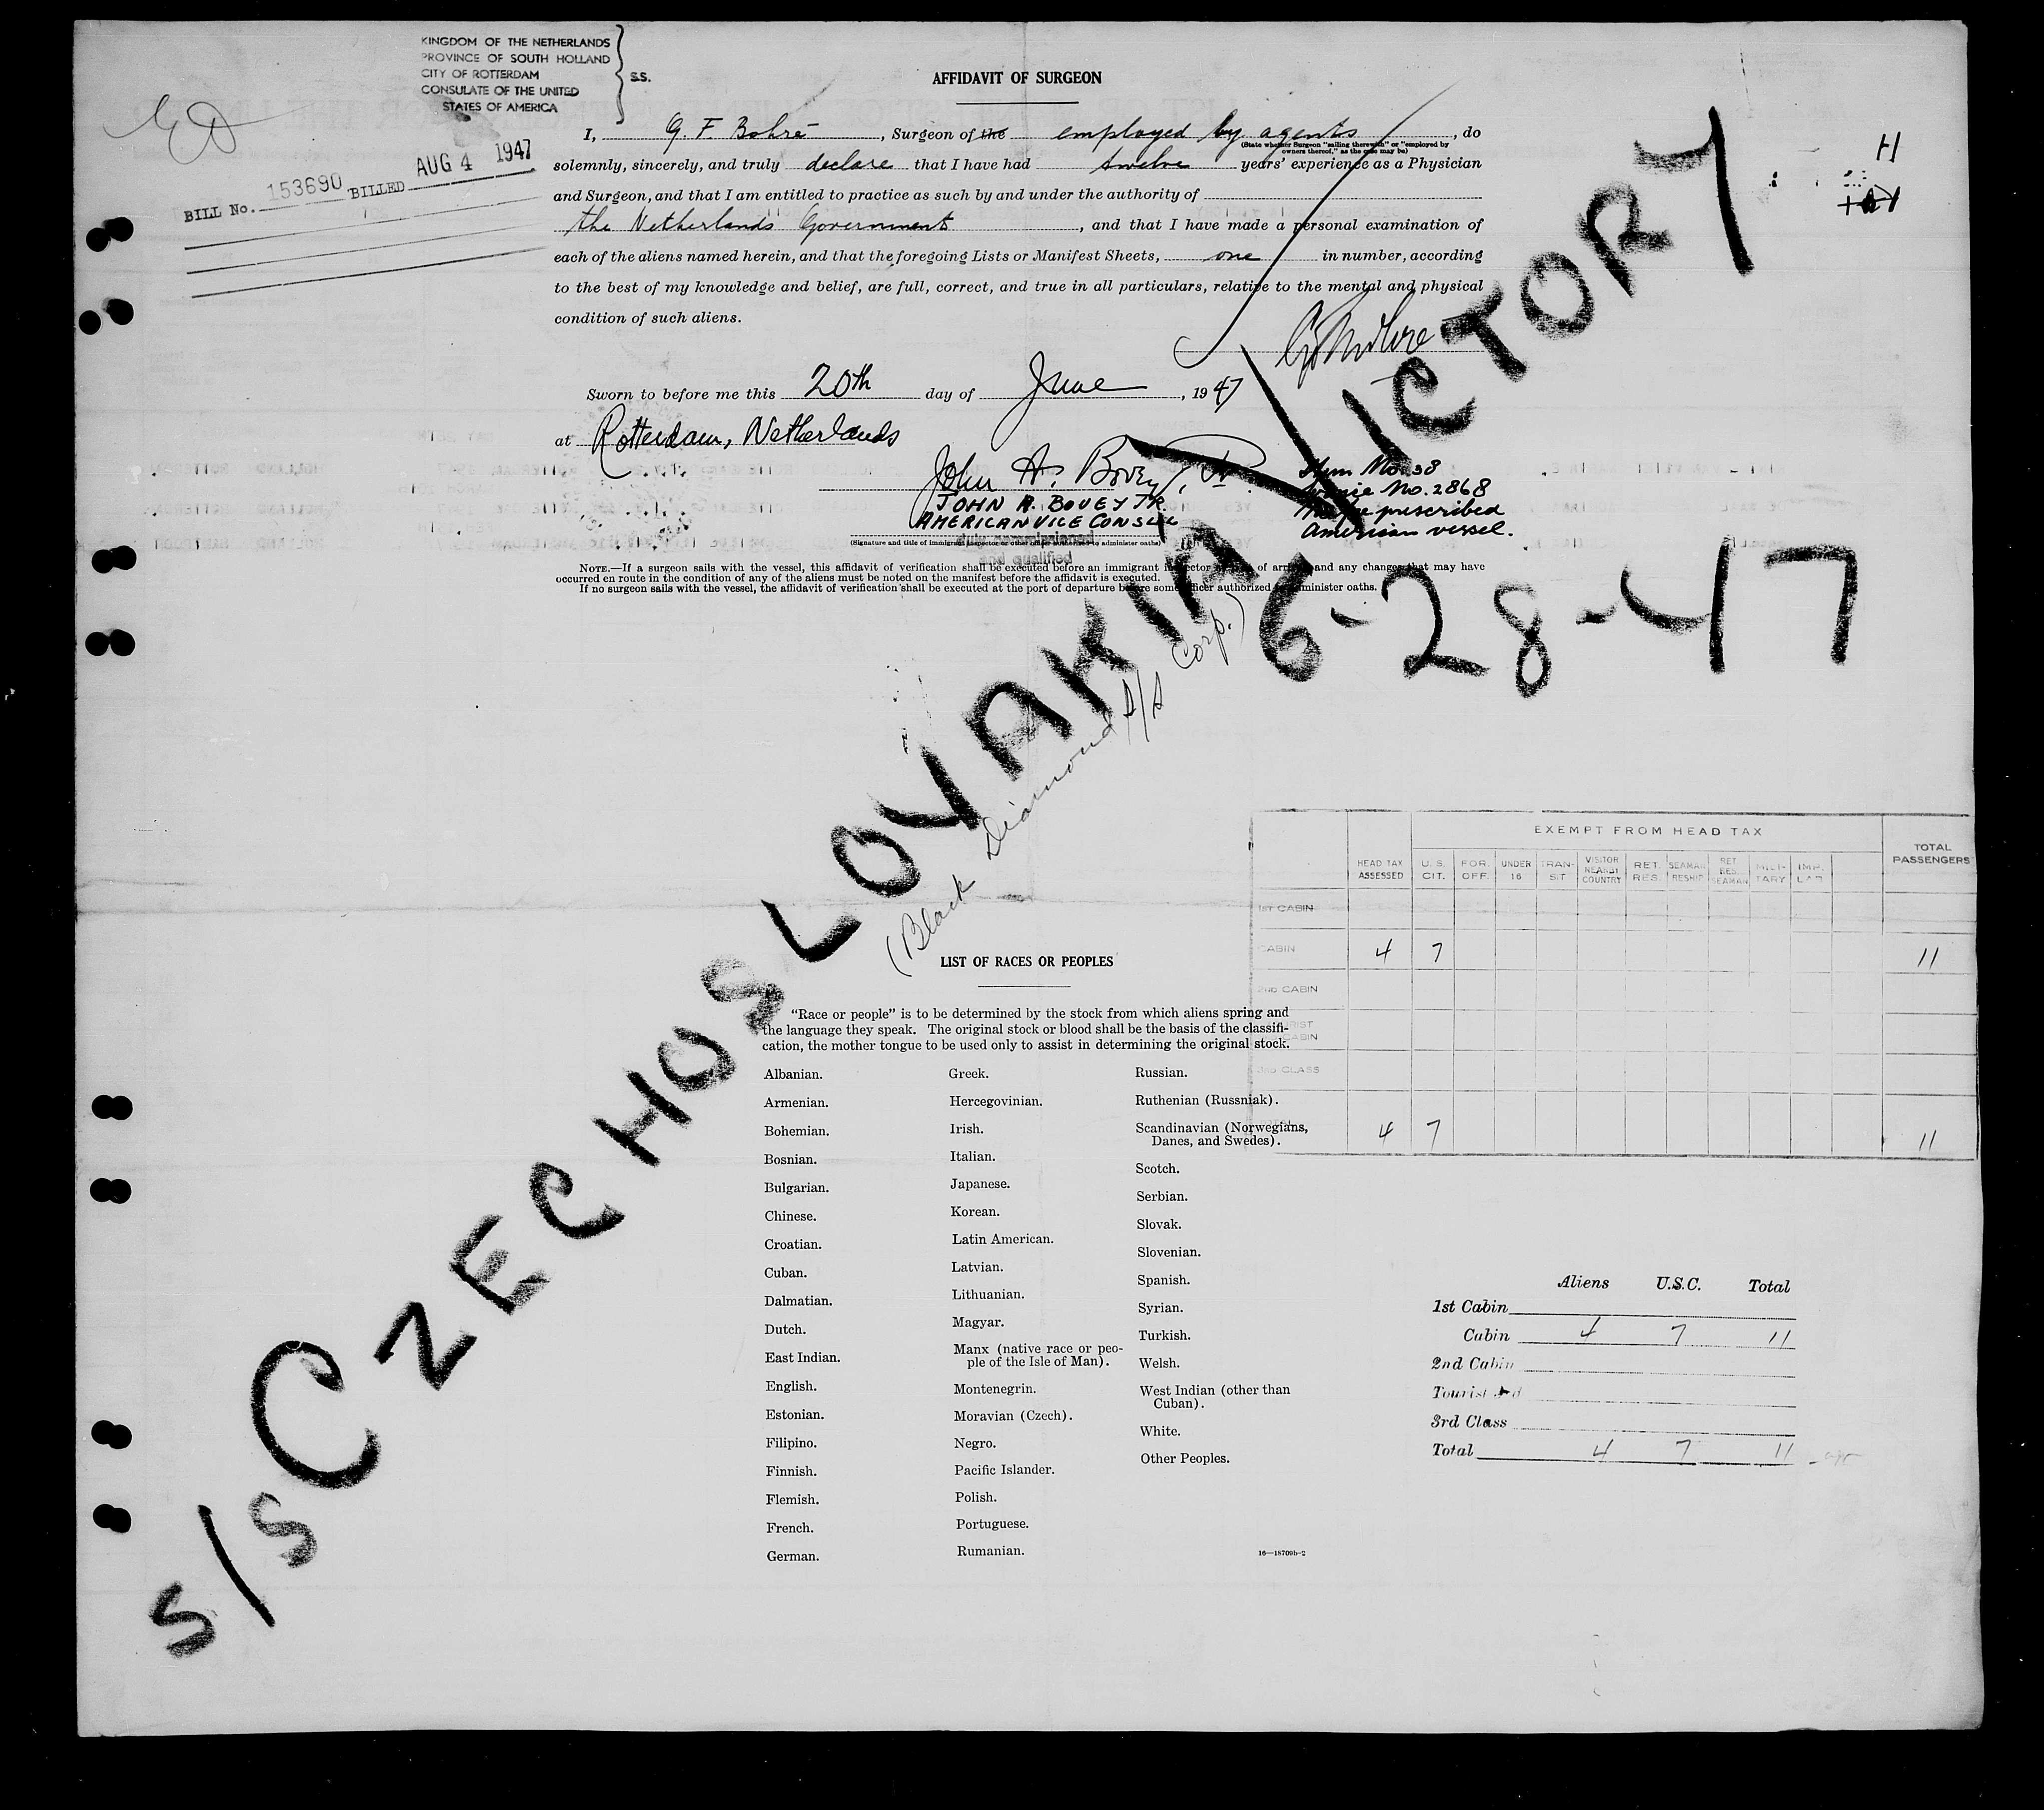 KINGDOM OF THE NETHERLANDS
PROVINCE OF SOUTH HOLLAND
CITY OF ROTTERDAM
CONSULATE OF THE UNITED
STATES OF AMERICA
S.S.
BILL No. 153690 BILLED AUG 4 1947
AFFIDAVIT OF SURGEON
I, G. F. Bohré, Surgeon of the employed by agents, do
(State whether Surgeon "sailing therewith" or "employed by
owners thereof," as the case may be)
solemnly, sincerely, and truly declare that I have had twelve years' experience as a Physician
and Surgeon, and that I am entitled to practice as such by and under the authority of
the Netherlands Government, and that I have made a personal examination of
each of the aliens named herein, and that the foregoing Lists or Manifest Sheets, one in number, according
to the best of my knowledge and belief, are full, correct, and true in all particulars, relative to the mental and physical
condition of such aliens.
Sworn to before me this 20th day of June, 1947
at Rotterdam, Netherlands
John A. Bovey, Jr.
JOHN A. BOVEY JR.
AMERICAN VICE CONSUL
(Signature and title of immigrant inspector or other officer authorized to administer oaths)
and qualified
Item No. 38
No. 2868
prescribed
American vessel.
NOTE.—If a surgeon sails with the vessel, this affidavit of verification shall be executed before an immigrant inspector of and any changes that may have
occurred en route in the condition of any of the aliens must be noted on the manifest before the affidavit is executed.
If no surgeon sails with the vessel, the affidavit of verification shall be executed at the port of departure before some officer authorized to administer oaths.
S/S CZECHOSLOVAKIA VICTORY
6-28-47
(Black Diamond S/S Corp.)
EXEMPT FROM HEAD TAX
HEAD TAX ASSESSED U.S. CIT. FOR. OFF. UNDER 16 TRAN-SIT VISITOR NEARBY COUNTRY RET. RES. SEAMAN RESHIP RET. RES. SEAMAN MILI-TARY IMP. LAB TOTAL PASSENGERS
1ST CABIN
CABIN 4 7 11
2ND CABIN
TOURIST CABIN
3RD CLASS
4 7 11
LIST OF RACES OR PEOPLES
"Race or people" is to be determined by the stock from which aliens spring and
the language they speak. The original stock or blood shall be the basis of the classifi-
cation, the mother tongue to be used only to assist in determining the original stock.
Albanian.
Armenian.
Bohemian.
Bosnian.
Bulgarian.
Chinese.
Croatian.
Cuban.
Dalmatian.
Dutch.
East Indian.
English.
Estonian.
Filipino.
Finnish.
Flemish.
French.
German.
Greek.
Hercegovinian.
Irish.
Italian.
Japanese.
Korean.
Latin American.
Latvian.
Lithuanian.
Magyar.
Manx (native race or peo-
ple of the Isle of Man).
Montenegrin.
Moravian (Czech).
Negro.
Pacific Islander.
Polish.
Portuguese.
Rumanian.
Russian.
Ruthenian (Russniak).
Scandinavian (Norwegians,
Danes, and Swedes).
Scotch.
Serbian.
Slovak.
Slovenian.
Spanish.
Syrian.
Turkish.
Welsh.
West Indian (other than
Cuban).
White.
Other Peoples.
16—18709b-2
Aliens U.S.C. Total
1st Cabin
Cabin 4 7 11
2nd Cabin
Tourist 3rd
3rd Class
Total 4 7 11